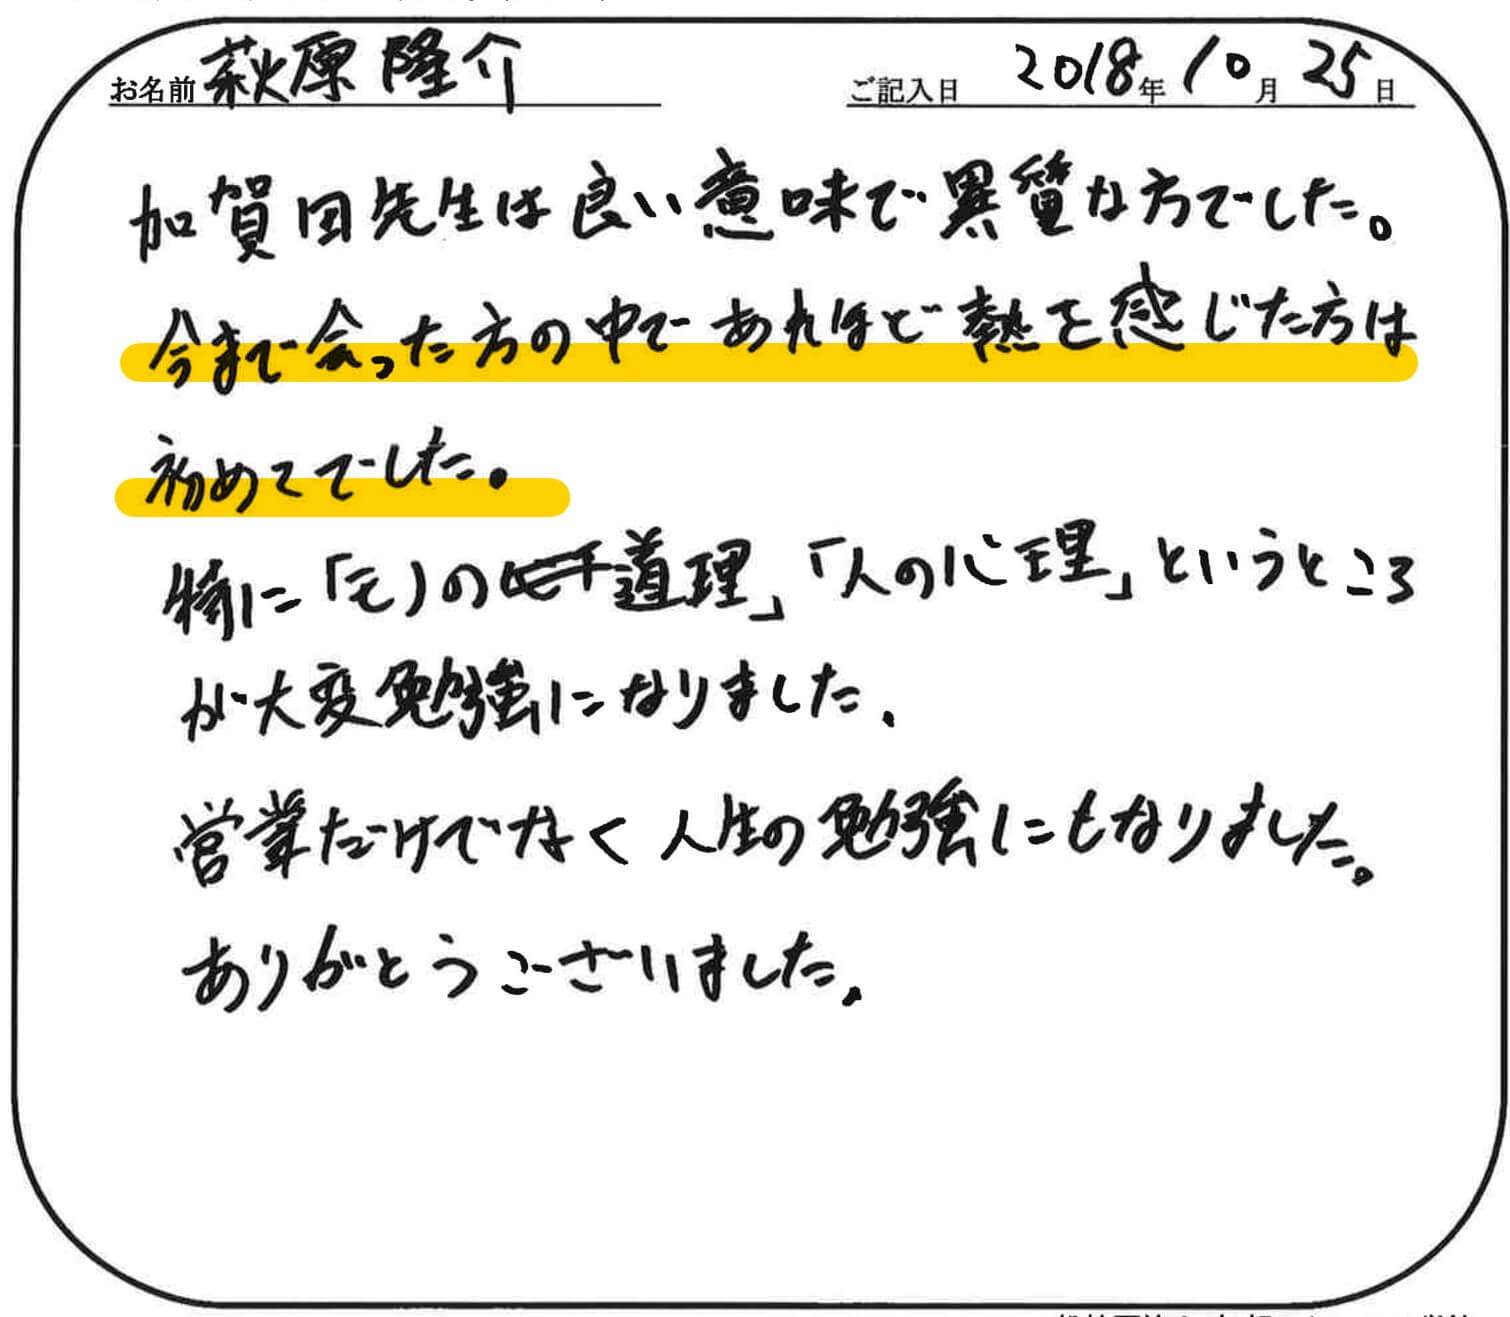 お名前 萩原隆介 ご記入日 2018年10月25日
加賀田先生は良い意味で異質な方でした。
今まで会った方の中であれほど熱を感じた方は
初めてでした。
特に「モノの道理」「人の心理」というところ
が大変勉強になりました。
営業だけでなく人生の勉強にもなりました。
ありがとうございました。